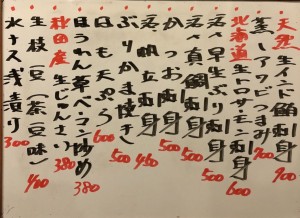 天然生インド鮪刺身 900
蒸しアワビつまみ 700
北海道生トロサーモン刺身 600
活〆早生ぶり刺身 500
活〆真鯛刺身 500
かつお刺身 500
活帆立刺身 450
ぶりかま焼き 500
はも天ぷら 600
ほうれん草ベーコン炒め 380
秋田産生じゅんさい 380
生枝豆(茶豆味) 400
水ナス浅漬け 300